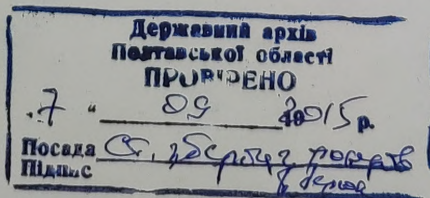 Державний архів
Полтавської області
ПРОВІРЕНО
"7" 09 2015 р.
Посада Ст. зберігач фондів
Підпис